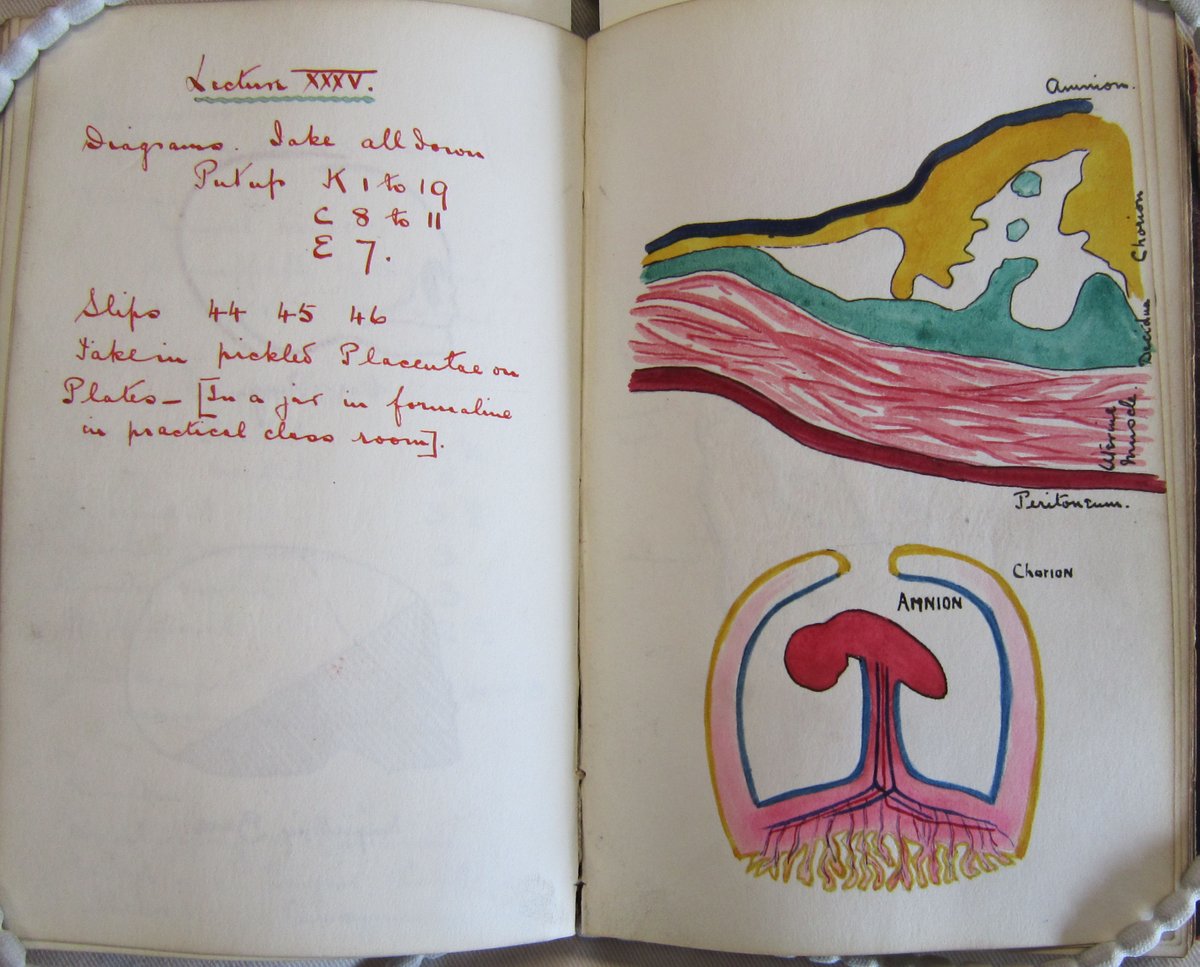 Lecture XXXV.
Diagrams. Take all down
Put up K 1 to 19
C 8 to 11
E 7.
Slips 44 45 46
Take in pickled Placentae on
Plates — [In a jar in formaline
in practical class room].
Amnion.
Chorion
Decidua
Uterine
muscle.
Peritoneum.
Chorion
AMNION